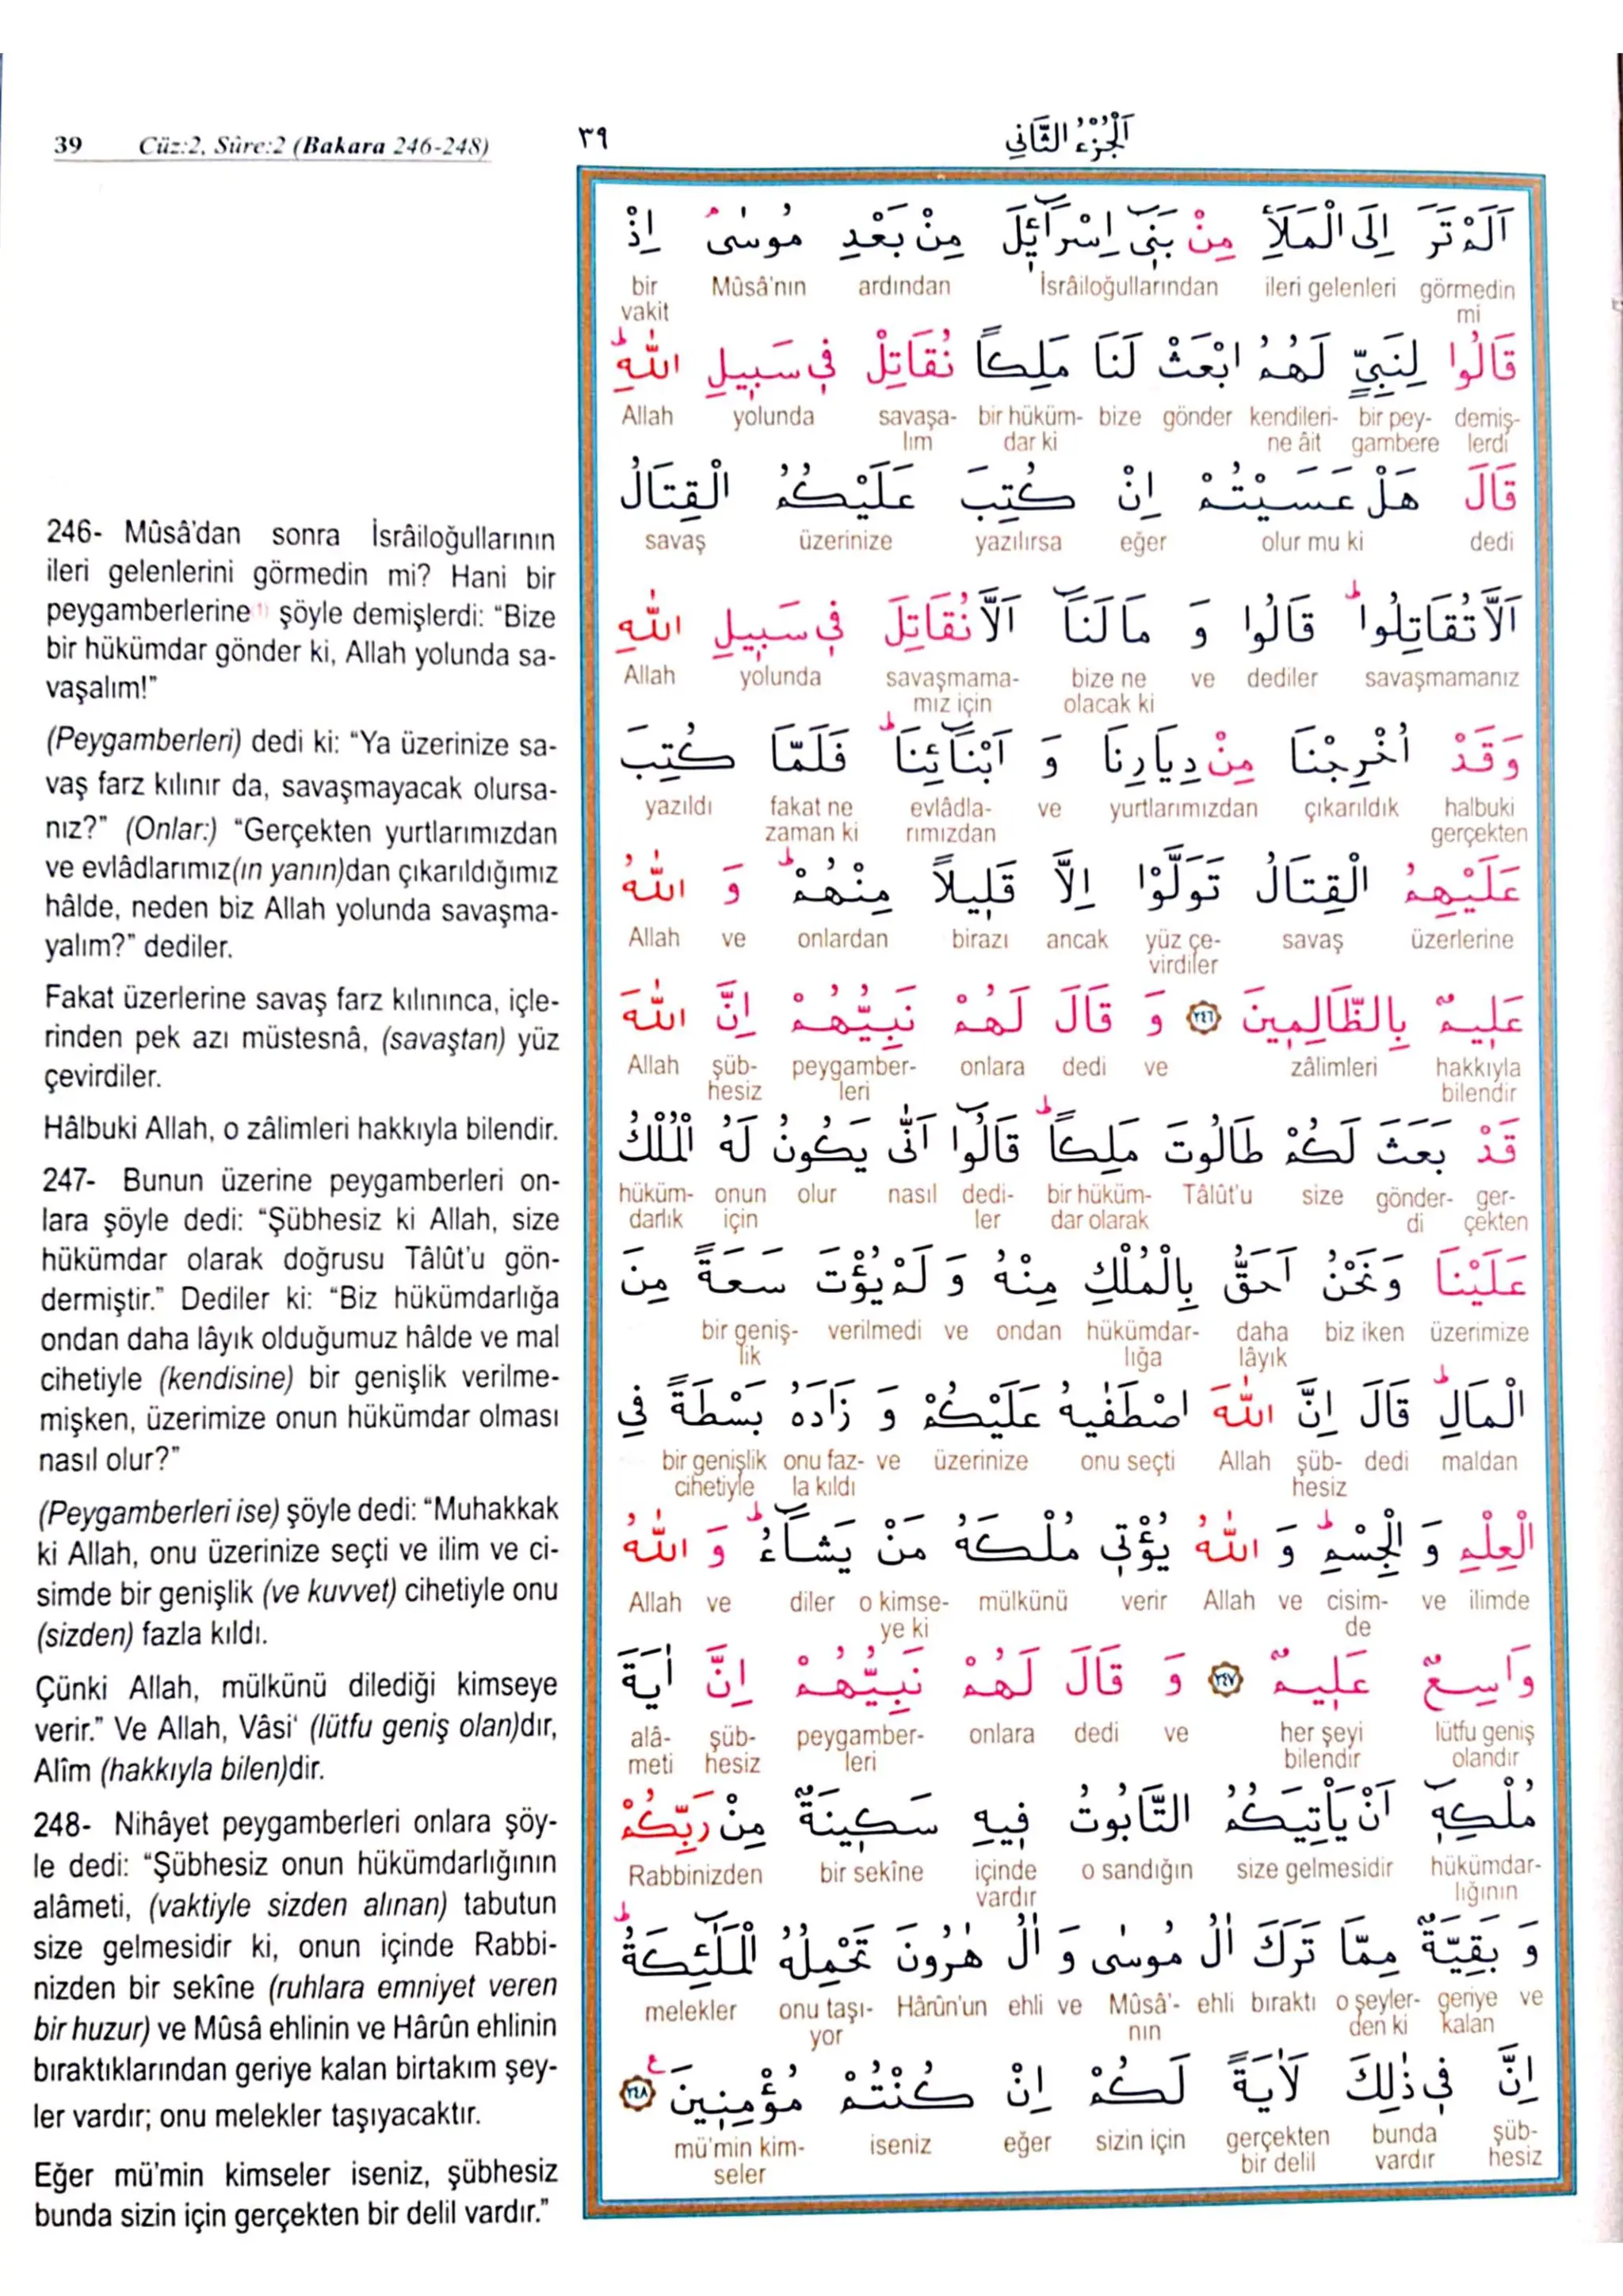 39 Cüz:2, Sûre:2 (Bakara 246-248)
٣٩ اَلْجُزْءُ الثَّانِي
246- Mûsâ'dan sonra İsrâiloğullarının
ileri gelenlerini görmedin mi? Hani bir
peygamberlerine (1) şöyle demişlerdi: "Bize
bir hükümdar gönder ki, Allah yolunda sa-
vaşalım!"
(Peygamberleri) dedi ki: "Ya üzerinize sa-
vaş farz kılınır da, savaşmayacak olursa-
nız?" (Onlar:) "Gerçekten yurtlarımızdan
ve evlâdlarımız(ın yanın)dan çıkarıldığımız
hâlde, neden biz Allah yolunda savaşma-
yalım?" dediler.
Fakat üzerlerine savaş farz kılınınca, içle-
rinden pek azı müstesnâ, (savaştan) yüz
çevirdiler.
Hâlbuki Allah, o zâlimleri hakkıyla bilendir.
247- Bunun üzerine peygamberleri on-
lara şöyle dedi: "Şübhesiz ki Allah, size
hükümdar olarak doğrusu Tâlût'u gön-
dermiştir." Dediler ki: "Biz hükümdarlığa
ondan daha lâyık olduğumuz hâlde ve mal
cihetiyle (kendisine) bir genişlik verilme-
mişken, üzerimize onun hükümdar olması
nasıl olur?"
(Peygamberleri ise) şöyle dedi: "Muhakkak
ki Allah, onu üzerinize seçti ve ilim ve ci-
simde bir genişlik (ve kuvvet) cihetiyle onu
(sizden) fazla kıldı.
Çünki Allah, mülkünü dilediği kimseye
verir." Ve Allah, Vâsi' (lütfu geniş olan)dır,
Alîm (hakkıyla bilen)dir.
248- Nihâyet peygamberleri onlara şöy-
le dedi: "Şübhesiz onun hükümdarlığının
alâmeti, (vaktiyle sizden alınan) tabutun
size gelmesidir ki, onun içinde Rabbi-
nizden bir sekîne (ruhlara emniyet veren
bir huzur) ve Mûsâ ehlinin ve Hârûn ehlinin
bıraktıklarından geriye kalan birtakım şey-
ler vardır; onu melekler taşıyacaktır.
Eğer mü'min kimseler iseniz, şübhesiz
bunda sizin için gerçekten bir delil vardır."
اَلَمْ تَرَ اِلَى الْمَلَأِ مِنْ بَنٖٓي اِسْرَٓائٖلَ مِنْ بَعْدِ مُوسٰىۘ اِذْ
bir Mûsâ'nın ardından İsrâiloğullarından ileri gelenleri görmedin
vakit mi
قَالُوا لِنَبِيٍّ لَهُمُ ابْعَثْ لَنَا مَلِكاً نُقَاتِلْ فٖي سَبٖيلِ اللّٰهِۜ
Allah yolunda savaşa- bir hüküm- bize gönder kendileri- bir pey- demiş-
lım dar ki ne âit gambere lerdi
قَالَ هَلْ عَسَيْتُمْ اِنْ كُتِبَ عَلَيْكُمُ الْقِتَالُ
savaş üzerinize yazılırsa eğer olur mu ki dedi
اَلَّا تُقَاتِلُواۜ قَالُوا وَ مَا لَنَٓا اَلَّا نُقَاتِلَ فٖي سَبٖيلِ اللّٰهِ
Allah yolunda savaşmama- bize ne ve dediler savaşmamanız
mız için olacak ki
وَقَدْ اُخْرِجْنَا مِنْ دِيَارِنَا وَ اَبْنَٓائِنَاۜ فَلَمَّا كُتِبَ
yazıldı fakat ne evlâdla- ve yurtlarımızdan çıkarıldık halbuki
zaman ki rımızdan gerçekten
عَلَيْهِمُ الْقِتَالُ تَوَلَّوْا اِلَّا قَلٖيلاً مِنْهُمْۜ وَ اللّٰهُ
Allah ve onlardan birazı ancak yüz çe- savaş üzerlerine
virdiler
عَلٖيمٌ بِالظَّالِمٖينَ ﴿٢٤٦﴾ وَ قَالَ لَهُمْ نَبِيُّهُمْ اِنَّ اللّٰهَ
Allah şüb- peygamber- onlara dedi ve zâlimleri hakkıyla
hesiz leri bilendir
قَدْ بَعَثَ لَكُمْ طَالُوتَ مَلِكاًۜ قَالُٓوا اَنّٰى يَكُونُ لَهُ الْمُلْكُ
hüküm- onun olur nasıl dedi- bir hüküm- Tâlût'u size gönder- ger-
darlık için ler dar olarak di çekten
عَلَيْنَا وَنَحْنُ اَحَقُّ بِالْمُلْكِ مِنْهُ وَ لَمْ يُؤْتَ سَعَةً مِنَ
bir geniş- verilmedi ve ondan hükümdar- daha biz iken üzerimize
lik lığa lâyık
الْمَالِۜ قَالَ اِنَّ اللّٰهَ اصْطَفٰيهُ عَلَيْكُمْ وَ زَادَهُ بَسْطَةً فِي
bir genişlik onu faz- ve üzerinize onu seçti Allah şüb- dedi maldan
cihetiyle la kıldı hesiz
الْعِلْمِ وَ الْجِسْمِۜ وَ اللّٰهُ يُؤْتٖي مُلْكَهُ مَنْ يَشَٓاءُۜ وَ اللّٰهُ
Allah ve diler o kimse- mülkünü verir Allah ve cisim- ve ilimde
ye ki de
وَاسِعٌ عَلٖيمٌ ﴿٢٤٧﴾ وَ قَالَ لَهُمْ نَبِيُّهُمْ اِنَّ اٰيَةَ
alâ- şüb- peygamber- onlara dedi ve her şeyi lütfu geniş
meti hesiz leri bilendir olandır
مُلْكِهٖٓ اَنْ يَأْتِيَكُمُ التَّابُوتُ فٖيهِ سَكٖينَةٌ مِنْ رَبِّكُمْ
Rabbinizden bir sekîne içinde o sandığın size gelmesidir hükümdar-
vardır lığının
وَ بَقِيَّةٌ مِمَّا تَرَكَ اٰلُ مُوسٰى وَ اٰلُ هٰرُونَ تَحْمِلُهُ الْمَلٰٓئِكَةُۜ
melekler onu taşı- Hârûn'un ehli ve Mûsâ'- ehli bıraktı o şeyler- geriye ve
yor nın den ki kalan
اِنَّ فٖي ذٰلِكَ لَاٰيَةً لَكُمْ اِنْ كُنْتُمْ مُؤْمِنٖينَ ﴿٢٤٨﴾ ع
mü'min kim- iseniz eğer sizin için gerçekten bunda şüb-
seler bir delil vardır hesiz